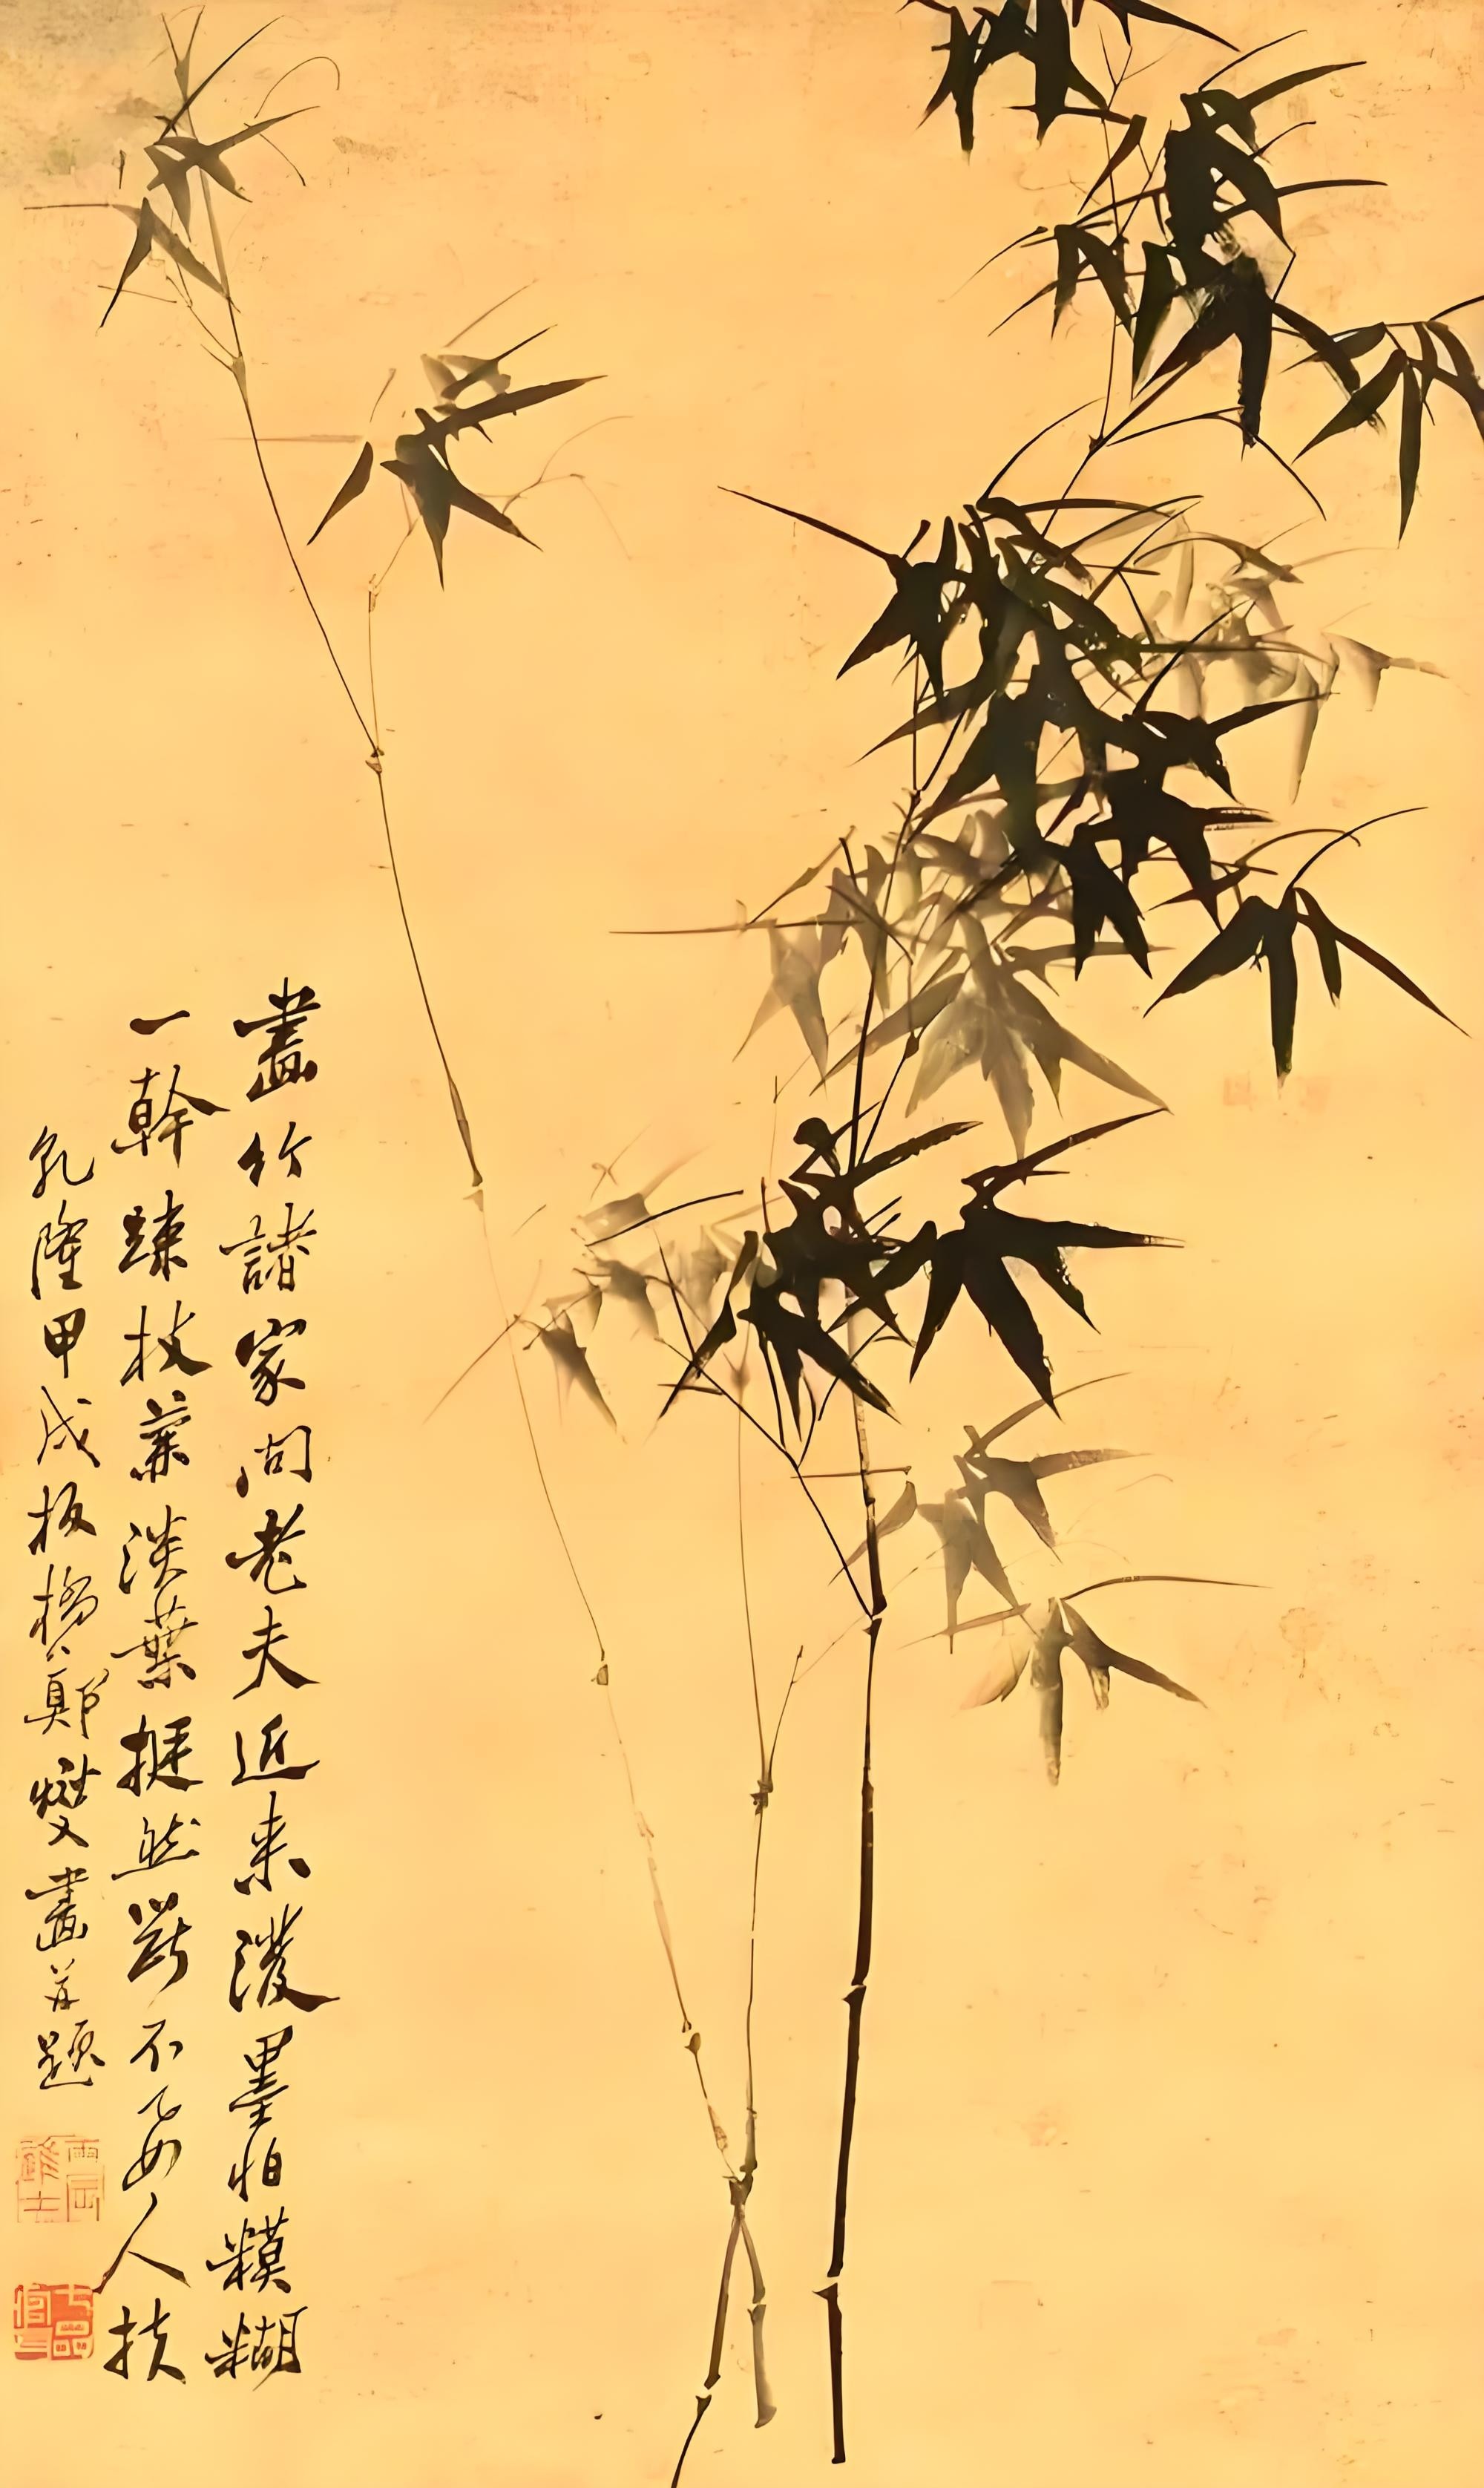 畫竹諸家問老夫近來潑墨怕糢糊
一幹踈枝兼淡葉挺然斷不要人扶
乾隆甲戌板橋鄭燮畫并題
七品官耳